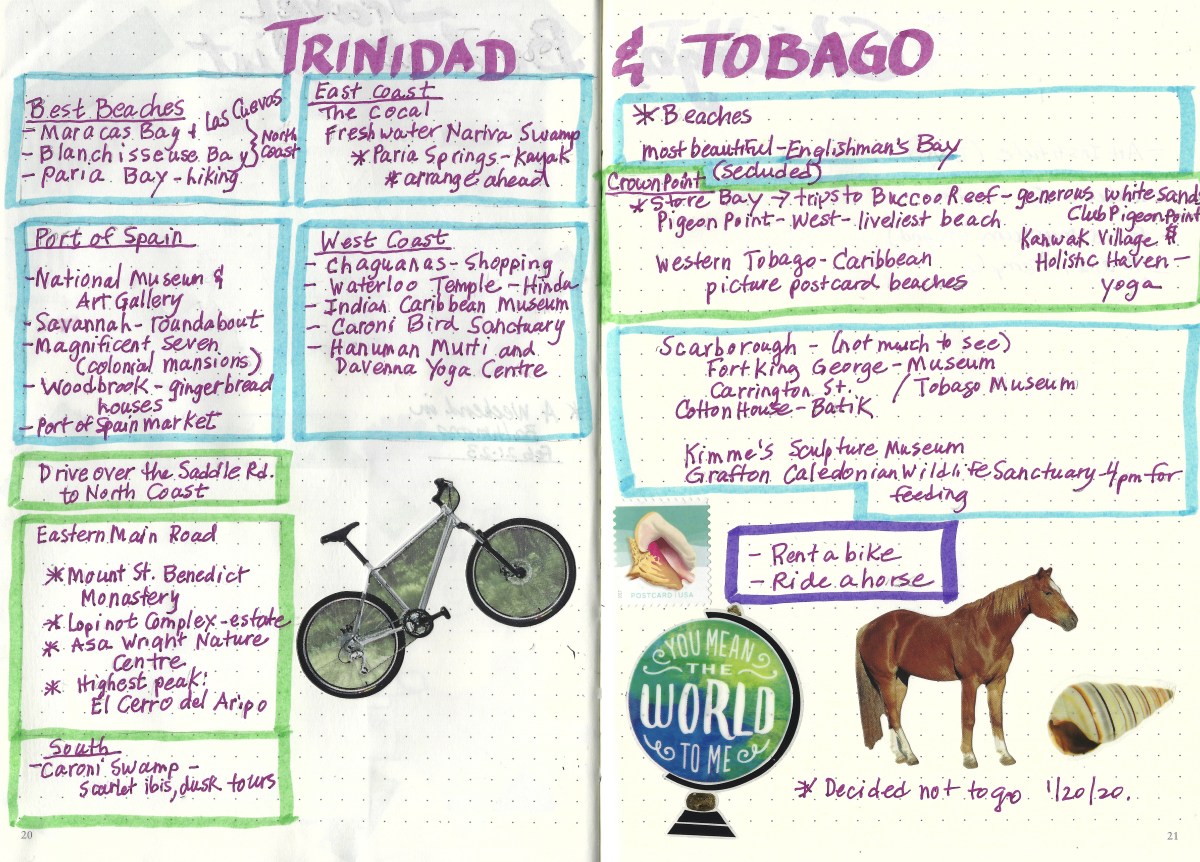 TRINIDAD
Best Beaches
- Maracas Bay + Las Cuevas
- Blanchisseuse Bay } North Coast
- Paria Bay - hiking
East Coast
The Cocal
Freshwater Nariva Swamp
* Paria Springs - kayak
* arrange ahead
Port of Spain
- National Museum &
Art Gallery
- Savannah - roundabout
- Magnificent Seven
(colonial mansions)
- Woodbrook - gingerbread
houses
- Port of Spain market
West Coast
- Chaguanas - Shopping
- Waterloo Temple - Hindu
- Indian Caribbean Museum
- Caroni Bird Sanctuary
- Hanuman Murti and
Davenna Yoga Centre
Drive over the Saddle Rd.
to North Coast
Eastern Main Road
* Mount St. Benedict
Monastery
* Lopinot Complex - estate
* Asa Wright Nature
Centre
* Highest peak:
El Cerro del Aripo
South
- Caroni Swamp -
Scarlet ibis, dusk tours
20
& TOBAGO
* Beaches
most beautiful - Englishman's Bay
(secluded)
Crown Point
* Store Bay → trips to Buccoo Reef - generous white sands
Pigeon Point - West - liveliest beach
Club Pigeon Point
Kanwak Village &
Holistic Haven -
yoga
Western Tobago - Caribbean
picture postcard beaches
Scarborough - (not much to see)
Fort King George - Museum
Carrington St. / Tobago Museum
Cotton House - Batik
Kimme's Sculpture Museum
Grafton Caledonian Wildlife Sanctuary - 4pm for
feeding
POSTCARD | USA
- Rent a bike
- Ride a horse
YOU MEAN
THE
WORLD
TO ME
* Decided not to go 1/20/20.
21